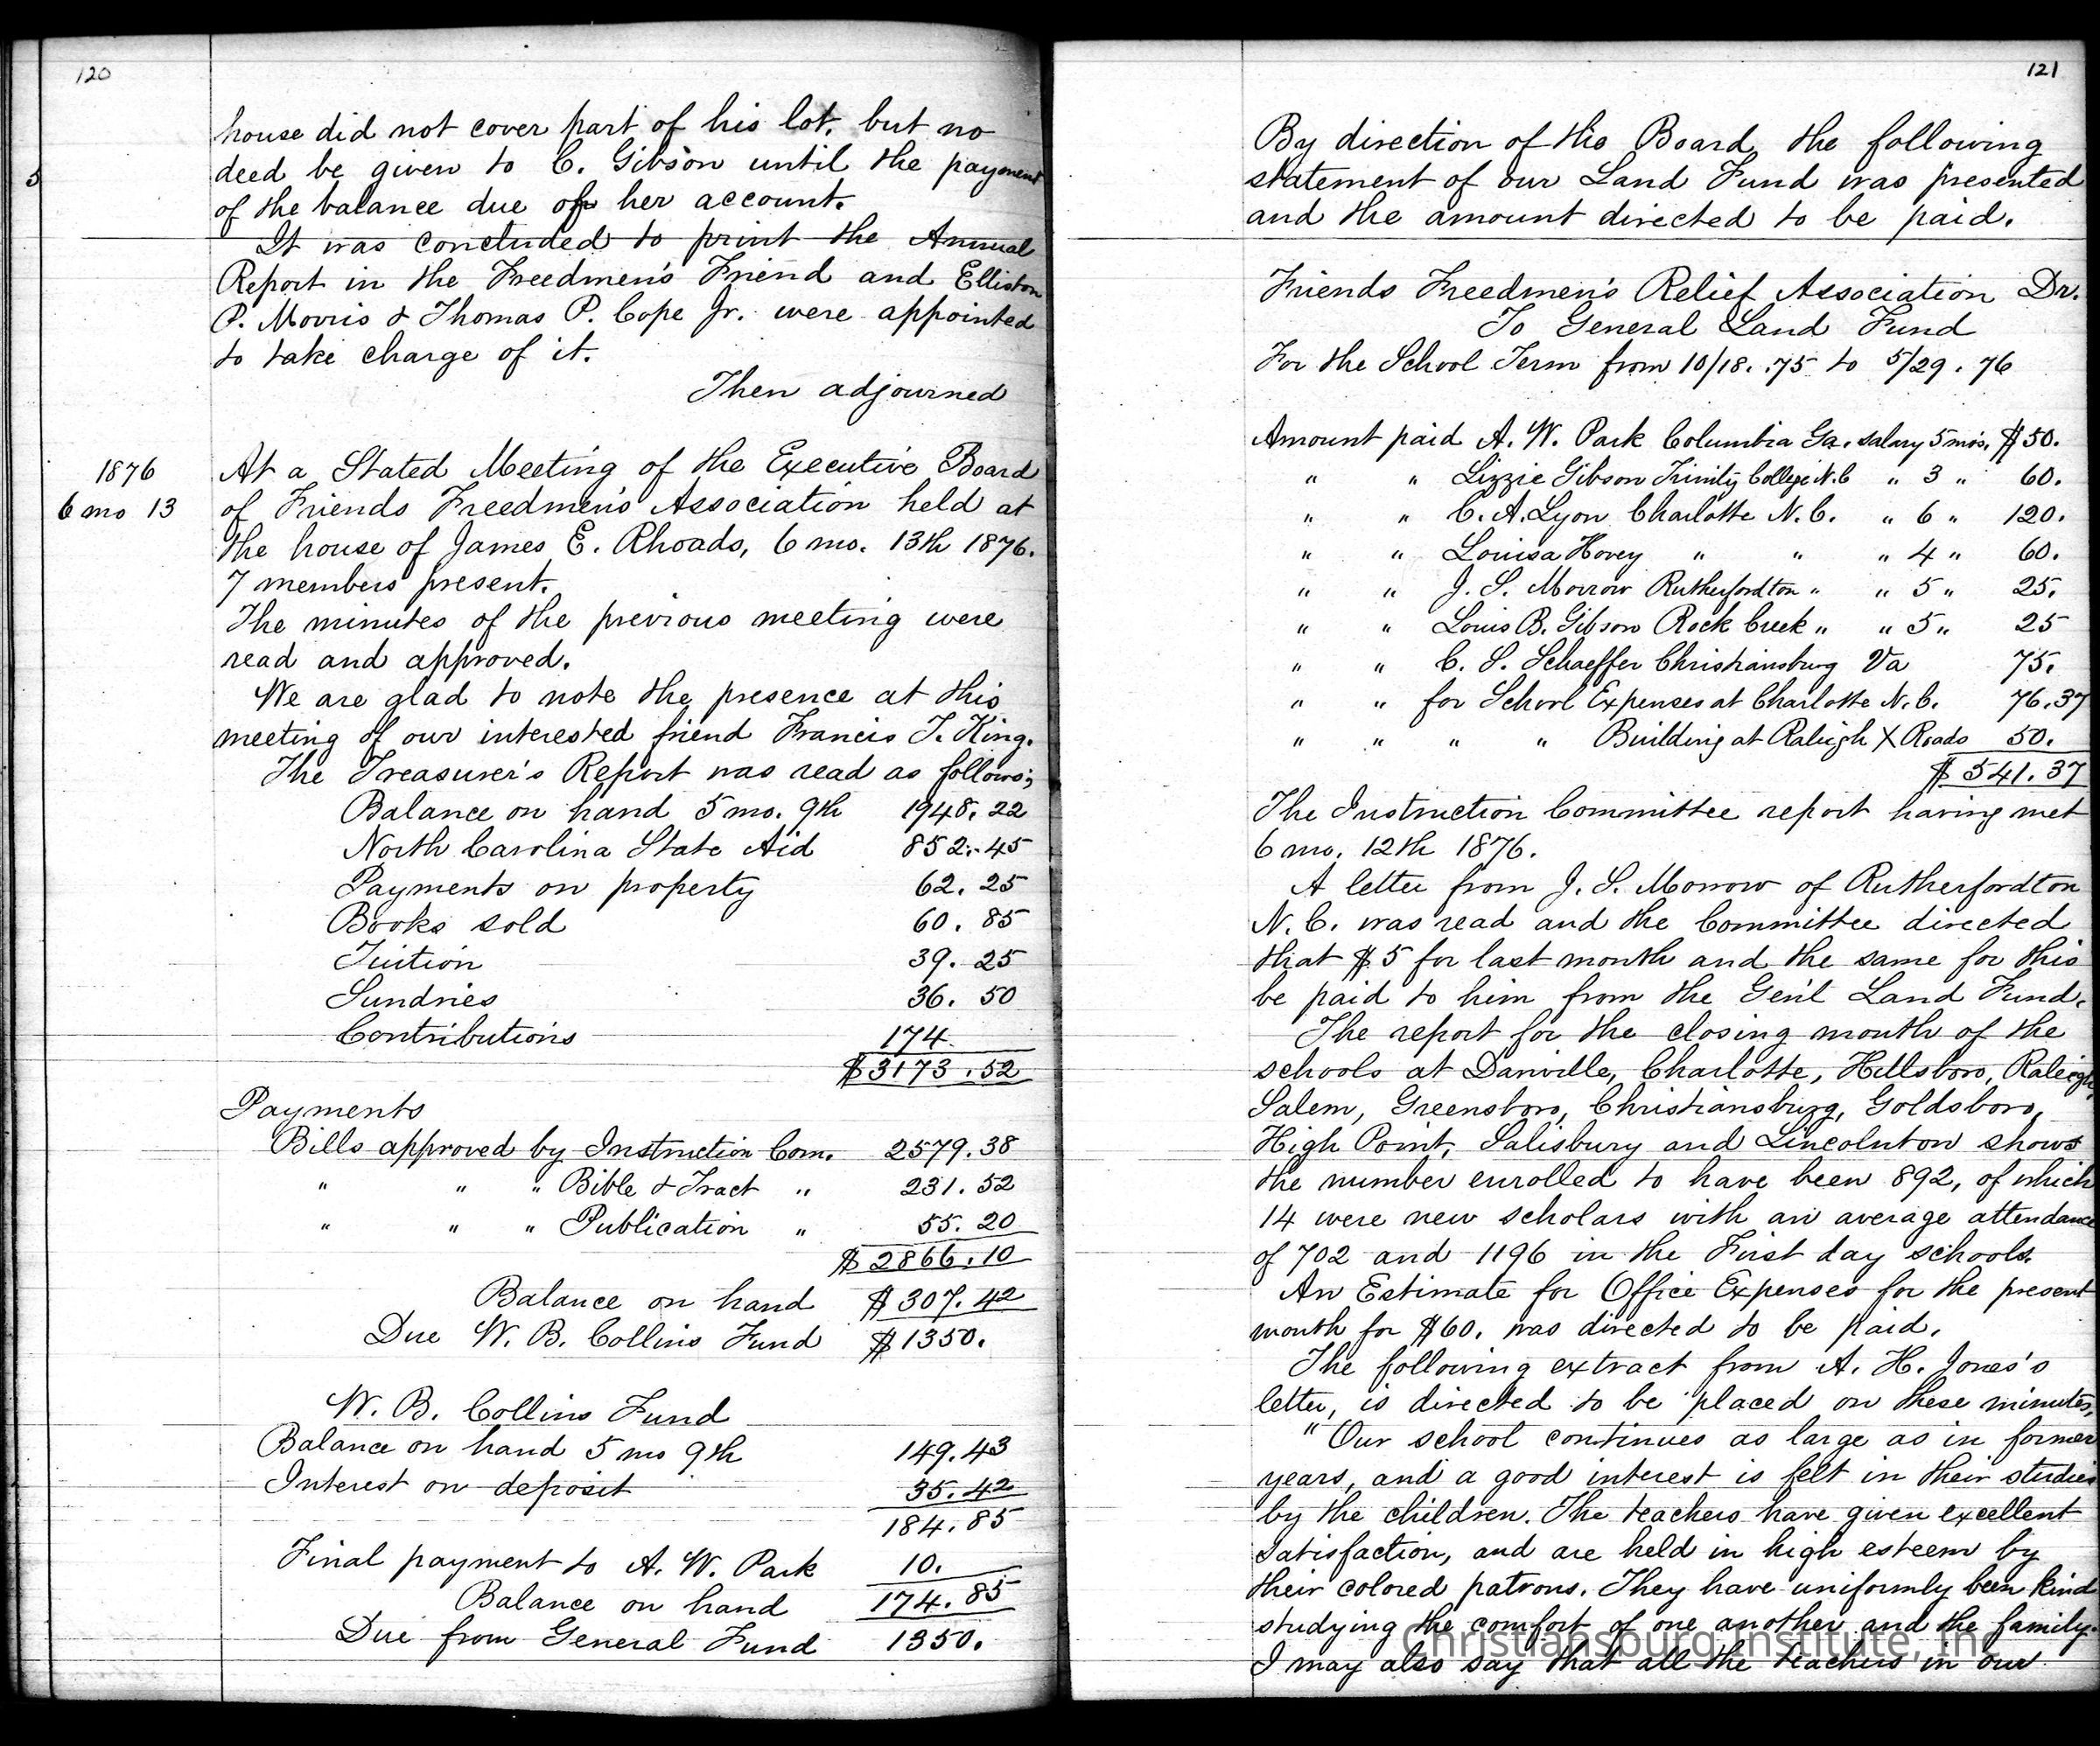 120
house did not cover part of his lot, but no
5
deed be given to C. Gibson until the payment
of the balance due of her account.
It was concluded to print the Annual
Report in the Freedmen's Friend and Elliston
P. Morris & Thomas P. Cope Jr. were appointed
to take charge of it.
Then adjourned
1876
6 mo 13
At a Stated Meeting of the Executive Board
of Friends Freedmen's Association held at
the house of James E. Rhoads, 6 mo. 13th 1876.
7 members present.
The minutes of the previous meeting were
read and approved.
We are glad to note the presence at this
meeting of our interested friend Francis T. King.
The Treasurer's Report was read as follows;
Balance on hand 5 mo. 9th 1948.22
North Carolina State Aid 852.45
Payments on property 62.25
Books sold 60.85
Tuition 39.25
Sundries 36.50
Contributions 174
$3173.52
Payments
Bills approved by Instruction Com. 2579.38
" " " Bible & Tract " 231.52
" " " Publication " 55.20
$2866.10
Balance on hand $307.42
Due W. B. Collins Fund $1350.
W. B. Collins Fund
Balance on hand 5 mo 9th 149.43
Interest on deposit 35.42
184.85
Final payment to A. W. Park 10.
Balance on hand 174.85
Due from General Fund 1350.
121
By direction of the Board the following
statement of our Land Fund was presented
and the amount directed to be paid.
Friends Freedmen's Relief Association Dr.
To General Land Fund
For the School Term from 10/18. .75 to 5/29. 76
Amount paid A. W. Park Columbia Ga. salary 5 mos. $50.
" " Lizzie Gibson Trinity College N.C " 3 " 60.
" " C. A. Lyon Charlotte N.C. " 6 " 120.
" " Louisa Hovey " " " 4 " 60.
" " J. S. Morrow Rutherfordton " " 5 " 25.
" " Louis B. Gibson Rock Creek " " 5 " 25
" " C. S. Schaeffer Christiansburg Va 75.
" " for School Expenses at Charlotte N.C. 76.37
" " " " Building at Raleigh X Roads 50.
$541.37
The Instruction Committee report having met
6 mo. 12th 1876.
A letter from J. S. Morrow of Rutherfordton
N.C. was read and the Committee directed
that $5 for last month and the same for this
be paid to him from the Gen'l Land Fund.
The report for the closing month of the
schools at Danville, Charlotte, Hillsboro, Raleigh,
Salem, Greensboro, Christiansburg, Goldsboro,
High Point, Salisbury and Lincolnton shows
the number enrolled to have been 892, of which
14 were new scholars with an average attendance
of 702 and 1196 in the First day schools.
An Estimate for Office Expenses for the present
month for $60. was directed to be paid.
The following extract from A. H. Jones's
letter, is directed to be placed on these minutes,
"Our school continues as large as in former
years, and a good interest is felt in their studies
by the children. The teachers have given excellent
satisfaction, and are held in high esteem by
their colored patrons. They have uniformly been kind
studying the comfort of one another and the family.
I may also say that all the teachers in our
Christiansburg Institute, Inc.